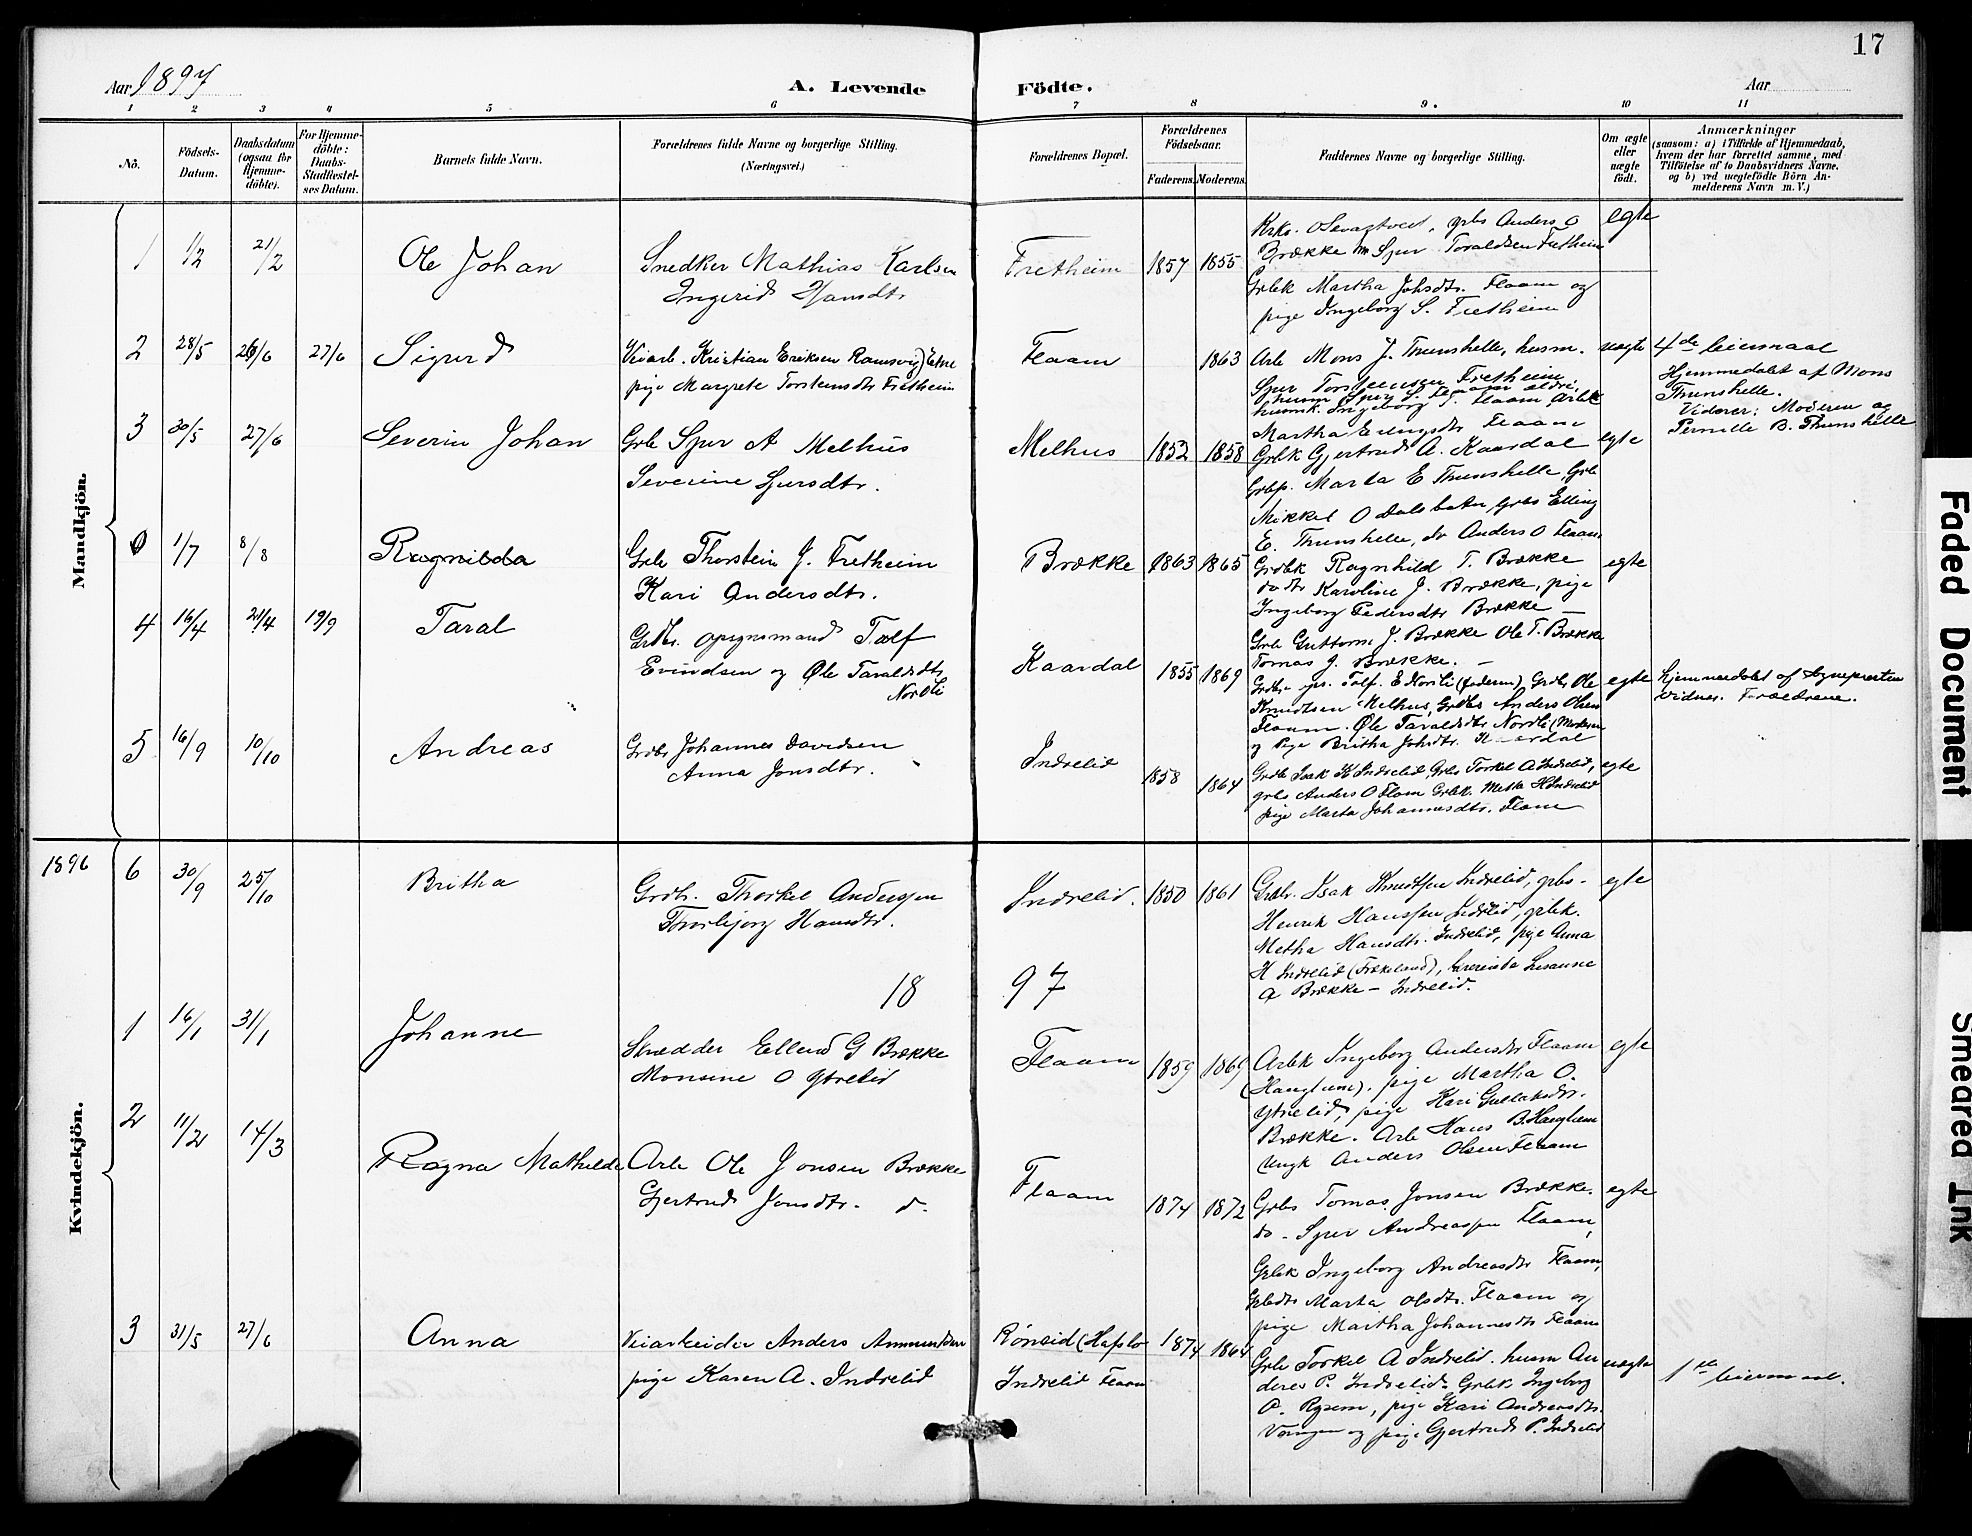 17
Aar 1897
A. Levende Födte.
Aar
1 2 3 4 5 6 7 8 9. 10 11
No.
Födsels-Datum.
Daabsdatum (ogsaa for Hjemme-döbte).
For Hjemme-döbte: Daabs-Stadfæstel-ses Datum.
Barnets fulde Navn.
Forældrenes fulde Navne og borgerlige Stilling. (Næringsvei.)
Forældrenes Bopæl.
Forældrenes Födselsaar.
Faderens. Moderens.
Faddernes Navne og borgerlige Stilling.
Om ægte eller uægte födt.
Anmærkninger
(saasom: a) i Tilfælde af Hjemmedaab,
hvem der har forrettet samme, med
Tilföielse af to Daabsvidners Navne,
og b) ved uægtefödte Börn An-
melderens Navn m. V.)
Mandkjön.
1 1/2 21/2 Ole Johan
Snedker Mathias Karlsen
Ingerid Hansdtr.
Fretheim 1857 1855
Anders O
Brække Sjur Taraldsen Fretheim
Grbk Martha Johsdtr. Flaam og
pige Ingeborg S. Fretheim
egte
2 28/5 26/6 27/6 Sigurd
Veiarb. Kristian Eriksen Ramsvig) Etne
pige Margrete Torsteinsdtr Fretheim
Flaam 1863
Arb Mons J. Thunshelle, husm.
Sjur Torsteinsen Fretheim
Martha Erlingsdtr Flaam
uægte
4de leiermaal
Hjemmedøbt af Mons
Thunshelle.
Vidner: Moderen og
Pernille B. Thunshelle
3 30/5 27/6 Severin Johan
Grbr Sjur A Melhus
Severine Sjursdtr.
Melhus 1852 1858
Grbk Gjertrud A. Kaardal
Marta E Thunshelle, Grbr
Mikkel O Dalsbotn, grbs Elling
E. Thunshelle, do Anders O Flaam
egte
0 1/7 8/8 Ragnilda
Grbr Thorstein J. Fretheim
Kari Andersdtr.
Brække 1863 1865
Grbk Ragnhild T. Brække
Karoline J. Brække, pige
Ingeborg Pedersdtr Brække —
Grbr Guttorm J. Brække Ole T. Brække
Tomas J. Brække. —
egte
4 16/4 21/4 19/9 Taral
Grdbr. opsynsmand Tolf
Evindsen og Øle Taraldsdtr
Nordli
Kaardal 1855 1869
Tolf. E Nordli (faderen) Grdbr Ole
Knudtsen Melhus, Grdbr Anders Olsen
Flaam. Øle Taraldsdtr Nordli (Moderen
og Pige Britha Johsdtr. Kaardal
egte
hjemmedøbt af Sognepresten
vidner. Forældrene.
5 16/9 10/10 Andreas
Grdbr Johannes Davidsen
Anna Jonsdtr.
Indrelid 1858 1864
Grdb Isak K Indrelid, Grbs Torkel A Indrelid,
grbs Anders O Flam Grbk. Metta H Indrelid
pige Marta Johannesdtr. Flam
egte
Kvindekjön.
1896 6 30/9 25/10 Britha
Grdb. Thorkel Anderssen
Thorbjørg Hansdtr.
Indrelid. 1850 1861
Grdbr. Isak Knudtsen Indrelid, grbs-
Henrik Hanssen Indrelid, grbk.
Metha Hansdtr. Indrelid, pige Anna
H Indrelid (Frekeland), Susanne
A Brække – Indrelid.
egte
1897
1 16/1 31/1 Johanne
Skredder Ellend G Brække
Monsine O Ytrelid
Flaam 1859 1869
Arbk Ingeborg Andersdtr Flaam
(Haughem). pige Martha O.
Ytrelid, pige Kari Gullaksdtr.
Brække. Arb Hans B. Haughem
Ungk Anders Olsen Flaam
egte
2 11/2 14/3 Ragna Mathilde
Arb Ole Jonsen Brække
Gjertrud Jonsdtr. d.
Flaam 1874 1872
Grbs Tomas Jonsen Brække.
do - Sjur Andreassen Flaam,
Grbk Ingeborg Andreasdtr Flaam,
Marta Olsdtr. Flaam og
pige Martha Johannesdtr Flaam
egte
3 31/5 27/6 Anna
Veiarbeider Anders Ammundsen
pige Karen A. Indrelid
Rôneid (Hafslo
Indrelid Flaam
1874 1864
Grbr Torkel A Indrelid. husm An
deres P. Indrelid. Grbk Ingeborg
P. Ryum, pige Kari Andreasdtr.
Vangen og pige Gjertrud P. Indrelid
uægte
1ste leiermaal.
Faded Document
Smeared Ink